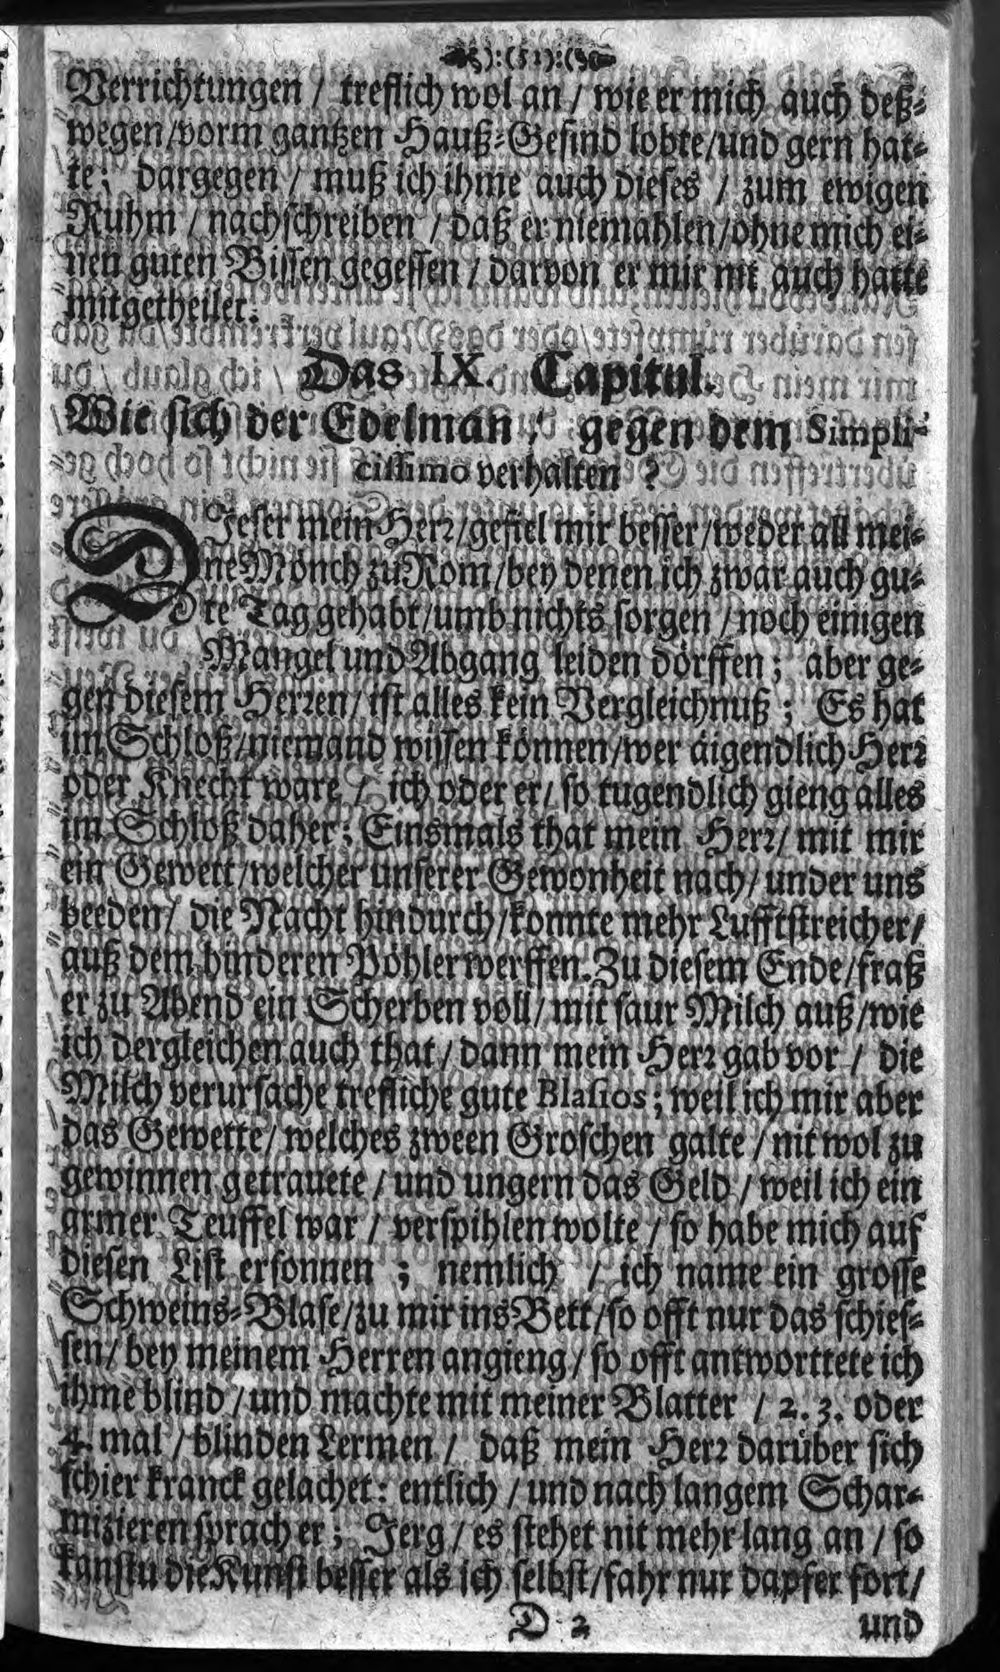 ):(51):(
Verrichtungen / treflich wol an / wie er mich auch deß-
wegen/vorm gantzen Hauß-Gesind lobte/und gern hat-
te; dargegen / muß ich ihme auch dieses / zum ewigen
Ruhm / nachschreiben / daß er niemahlen/ohne mich ei-
nen guten Bissen gegessen / darvon er mir nit auch hatte
mitgetheilet.
Das IX. Capitul.
Wie sich der Edelman / gegen dem Simpli-
cissimo verhalten ?
DJeser mein Herr/gefiel mir besser/weder all mei-
ne Mönch zu Rom/bey denen ich zwar auch gu-
te Tag gehabt/umb nichts sorgen / noch einigen
Mangel und Abgang leiden dörffen; aber ge-
gen diesem Herren/ ist alles kein Vergleichnuß ; Es hat
im Schloß/niemand wissen können/wer äigendlich Herr
oder Knecht ware / ich oder er/ so tugendlich gieng alles
im Schloß daher; Einsmals that mein Herr/ mit mir
ein Gewett/welcher unserer Gewonheit nach/ under uns
beeden/ die Nacht hindurch/konnte mehr Lufftstreicher/
auß dem hinderen Pöhler werffen. Zu diesem Ende/fraß
er zu Abend ein Scherben voll/ mit saur Milch auß/wie
ich dergleichen auch that / dann mein Herr gab vor / die
Milch verursache trefliche gute Blasios; weil ich mir aber
das Gewette/ welches zween Groschen galte / nit wol zu
gewinnen getrauete / und ungern das Geld / weil ich ein
armer Teuffel war / verspihlen wolte / so habe mich auf
diesen List ersonnen ; nemlich / ich name ein grosse
Schweins-Blase/zu mir ins Bett/so offt nur das schies-
sen/ bey meinem Herren angieng / so offt antworttete ich
ihme blind / und machte mit meiner Blatter / 2. 3. oder
4. mal / blinden Lermen / daß mein Herr darüber sich
schier kranck gelachet: entlich / und nach langem Schar-
mizieren sprach er; Jerg / es stehet nit mehr lang an / so
kanstu die Kunst besser als ich selbst/fahr nur dapfer fort/
D 2 und